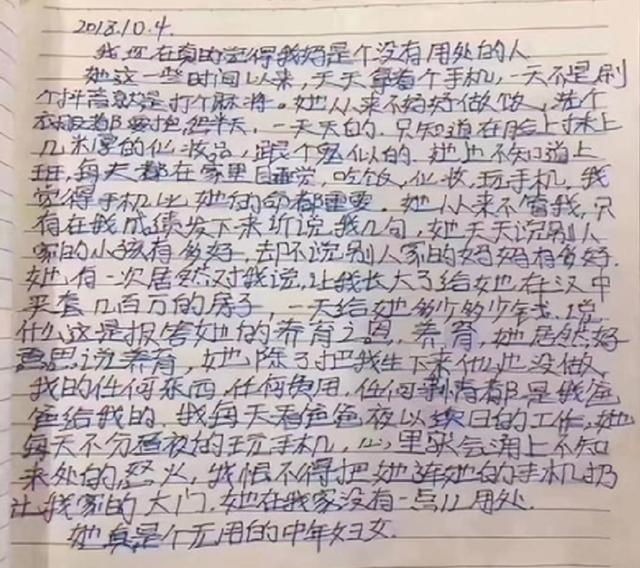 2018.10.4.
我现在真的觉得我妈是个没有用处的人
她这一些时间以来,天天拿着个手机,一天不是刷
个抖音就是打个麻将。她从来不好好做饭,洗个
衣服都要抱怨半天,一天天的.只知道在脸上抹上
几米厚的化妆品,跟个鬼似的.她也不知道上
班,每天都在家里睡觉,吃饭,化妆,玩手机,我
觉得手机比她的命都重要.她从来不管我,只
有在我成绩发下来听说我几句,她天天说别人
家的小孩有多好,却不说别人家的妈妈有多好.
她有一次居然对我说,让我长大了给她在汉中
买套几百万的房子,一天给她多少多少钱.说
什么这是报答她的养育之恩.养育,她居然好
意思说养育,她除了把我生下来什么也没做,
我的任何东西,任何费用.任何都是我爸
爸给我的.我每天看爸爸夜以继日的工作,她
每天不分昼夜的玩手机,心里就会涌上不知
来处的怒火,我恨不得把她连她的手机扔
出我家的大门.她在我家没有一点儿用处.
她真是个无用的中年妇女.